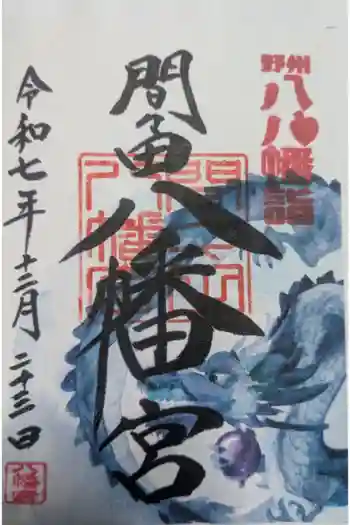 野州
八八幡詣
間々田八幡宮
令和七年十二月二十三日